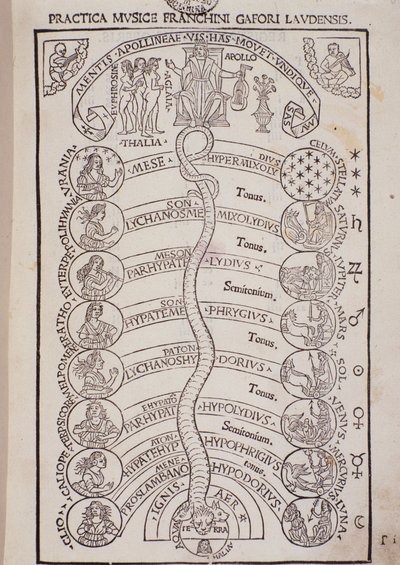 PRACTICA MVSICE FRANCHINI GAFORI LAVDENSIS.
MENTIS APOLLINEAE VIS HAS MOVET VNDIQVE MVSAS
APOLLO
EVPHROSINE
AGLAIA
THALIA
VRANIA
MESE
HYPERMIXOLYDIVS
CELVM STELLATVM
Tonus.
POLIHYMNIA
LYCHANOSMESON
MIXOLYDIVS
SATVRNVS
Tonus.
EVTERPE
PARHYPATEMESON
LYDIVS
IVPITER
Semitonium.
ERATHO
HYPATEMESON
PHRYGIVS
MARS
Tonus.
MELPOMENE
LYCHANOSHYPATON
DORIVS
SOL
Tonus.
TERPSICORE
PARHYPATEHYPATO
HYPOLYDIVS
VENVS
Semitonium.
CALIOPE
HYPATEHYPATON
HYPOPHRIGIVS
MERCVRIVS
tonus.
CLIO
PROSLAMBANOMENE
HYPODORIVS
LVNA
IGNIS
AER
TERRA